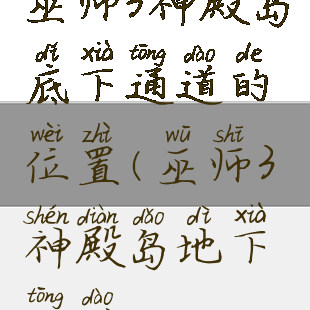 巫师3神殿岛
dǐ xià tōng dào de
底下通道的
wèi zhì wū shī
位置(巫师3
shén diàn dǎo dì xià
神殿岛地下
tōng dào